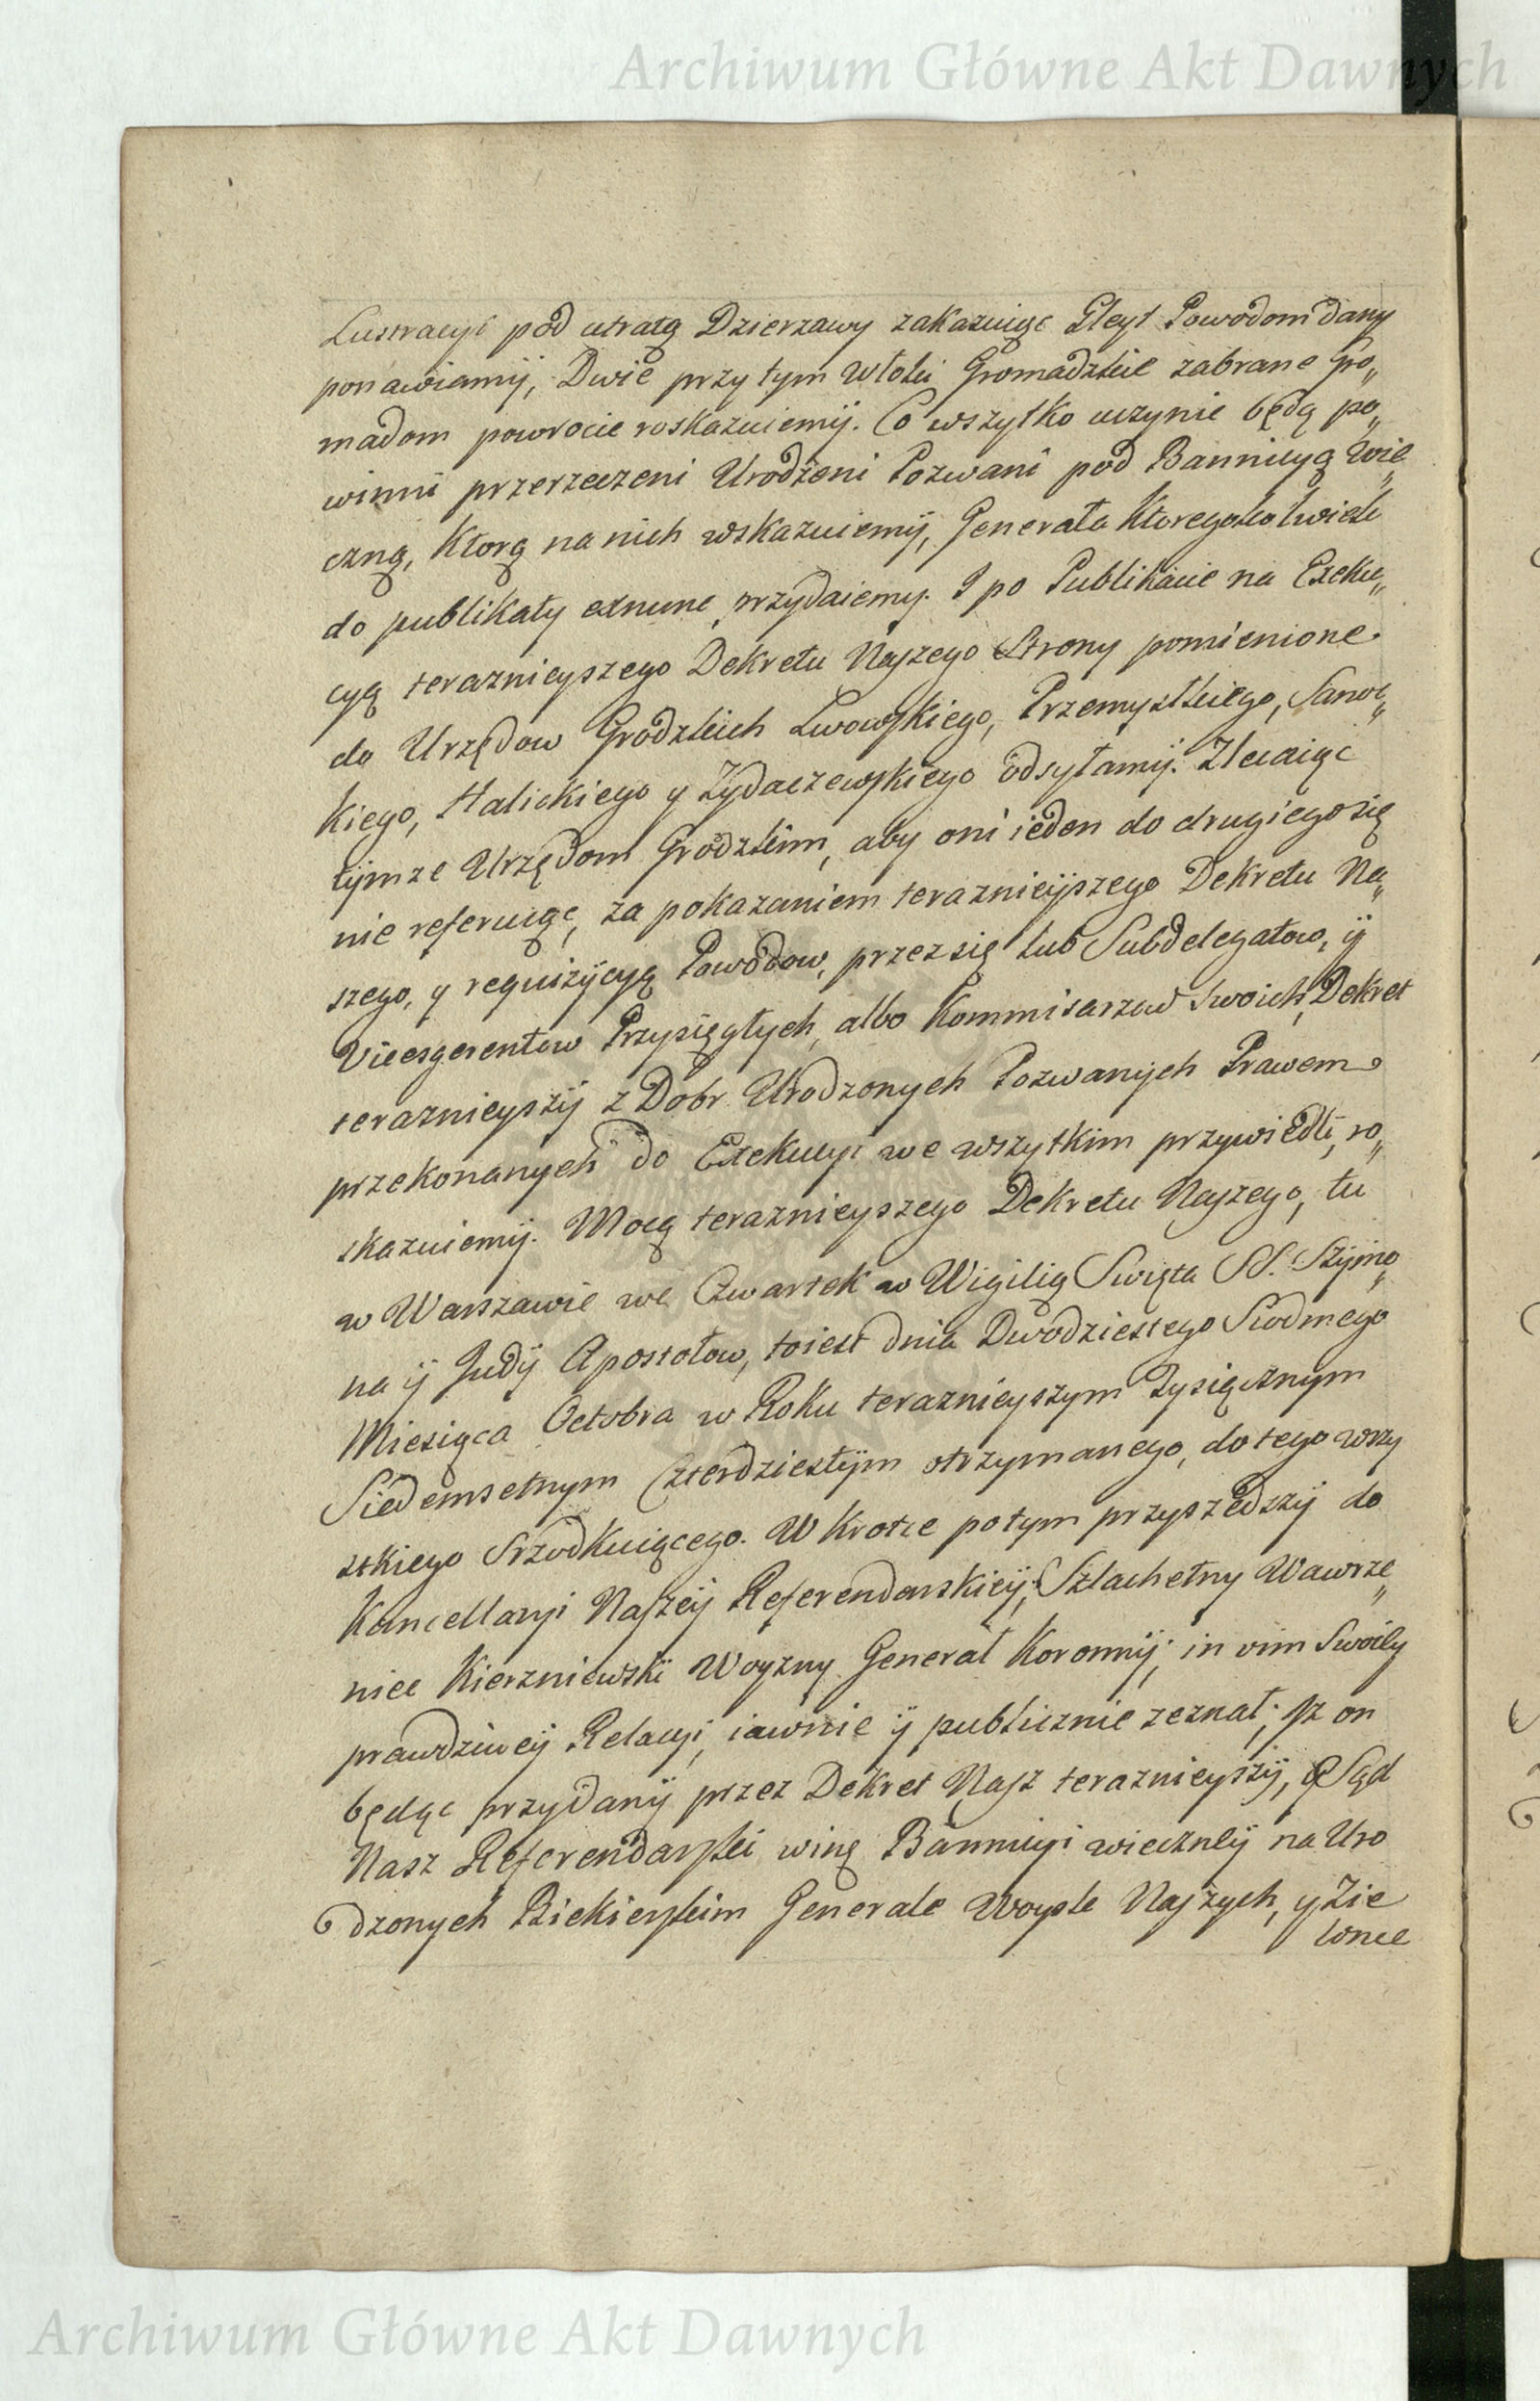 Archiwum Główne Akt Dawnych
Lustracyi pod utratą Dzierzawy zakazuiąc Gleyt Powodom dany
ponawiamÿ, Dwie przy tym Włoki Gromadzkie zabrane Gro„
madom powrocic roskazuiemÿ. Co wszytko uczynic będą po„
winni przerzeczeni Urodzeni Pozwani pod Bannicyą Wie„
czną, Ktorą na nich wskazuiemÿ, Generała Ktoregokolwiek
do publikaty exnunc przydaiemy. I po Publikacie na Exeku„
cyą teraznieyszego Dekretu Naszego Strony pomienione
do Urzędow Grodzkich Lwowskiego, Przemyskiego, Sanoc„
kiego, Halickiego y Zydaczewskiego odsyłamÿ. Zlecaiąc
tÿmze Urzędom Grodzkim, aby oni ieden do drugiego się
nie referuiąc, za pokazaniem teraznieÿszego Dekretu Na„
szego, y requizÿcyą Powodow, przez się lub Subdelegatow, ÿ
Vicesgerentow Przysięgłych, albo Kommisarzow Swoich, Dekret
teraznieyszÿ z Dobr Urodzonych Pozwanÿch Prawem
przekonanych do Exekucyi we wszytkim przywiedli, ro„
skazuiemÿ. Mocą teraznieyszego Dekretu Naszego, tu
w Warszawie we Czwartek w Wigilią Swięta SS. Szÿmo„
na ÿ Judÿ Apostołow, toiest dnia Dwodziestego Siodmego
Miesiąca Octobra w Roku teraznieyszym Tysiącznym
Siedemsetnym Czterdziestÿm otrzymanego, do tego wszy
stkiego Srzodkuiącego. W Krotce potym przyszedszÿ do
Kancellaryi Naszeÿ Referendarskieÿ, Szlachetny Wawrze„
niec Kierzniewski Woyzny Generał Koronnÿ, in vim Swoiey
prawdziweÿ Relacyi, iawnie ÿ publicznie zeznał; Iz on
będąc przydanÿ przez Dekret Nasz teraznieyszÿ, y Sąd
Nasz Referendarski winę Bannicyi wiecznеÿ na Uro
dzonych Biekierskim Generale Woysk Naszych, y Zie
lonce
Archiwum Główne Akt Dawnych